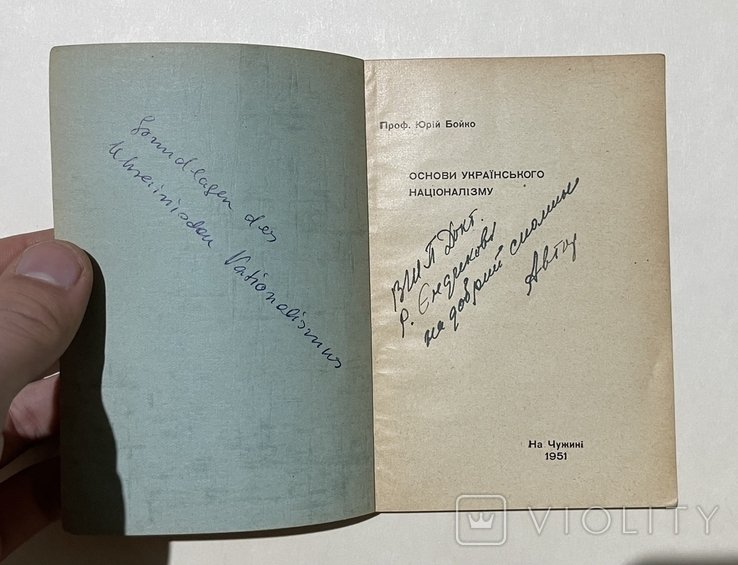 Grundlagen des
Ukrainischen Nationalismus
Проф. Юрій Бойко
ОСНОВИ УКРАЇНСЬКОГО
НАЦІОНАЛІЗМУ
ВШП Докт.
Р. Єндикові
на добрий спомин
Автор
На Чужині
1951
VIOLITY